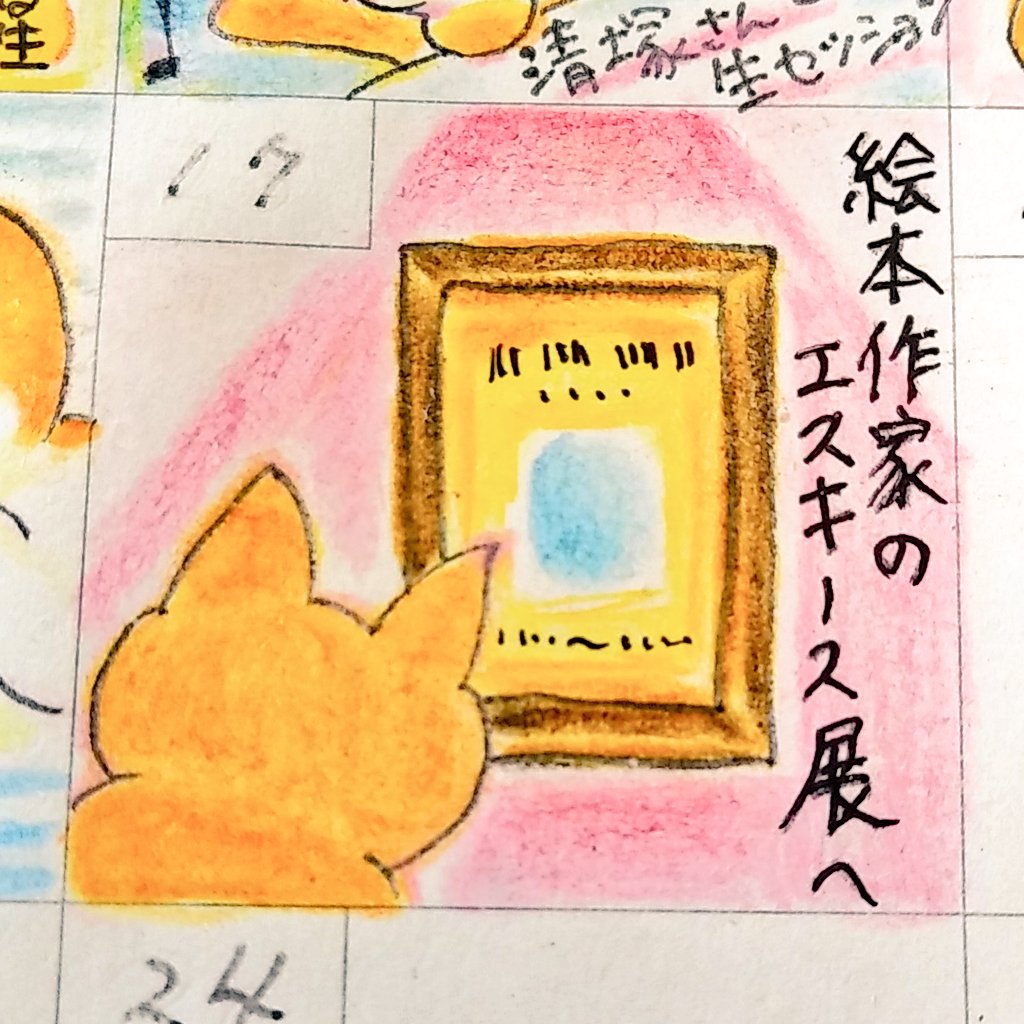 清塚さん
生セッション
17
絵本作家の
エスキース展へ
24